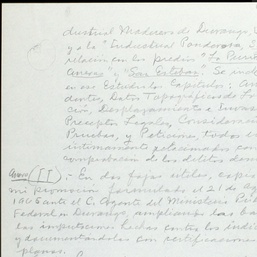 dustrial Maderera de Durango,
y a la "Industria Panadorosa,
relación en los predios "La Purí
"y "San Esteban". Se inclu
en ese Estudio los Capítulos: An
dentes, Datos Topográficos, Lo
ción, Desplazamiento e Invas
Preceptos Legales, Consideracion
Pruebas, y Peticiones, todos
intimamente relacionados con
comprobación de los delitos den
(II).- En dos fojas útiles, copia
mi promoción formulada el 21 de Ag
1966 ante el C. Agente del Ministerio Púb
Federal en Durango, ampliando las ba
las imputaciones hechas contra los indic
y documentándolas con certificaciones
planos.